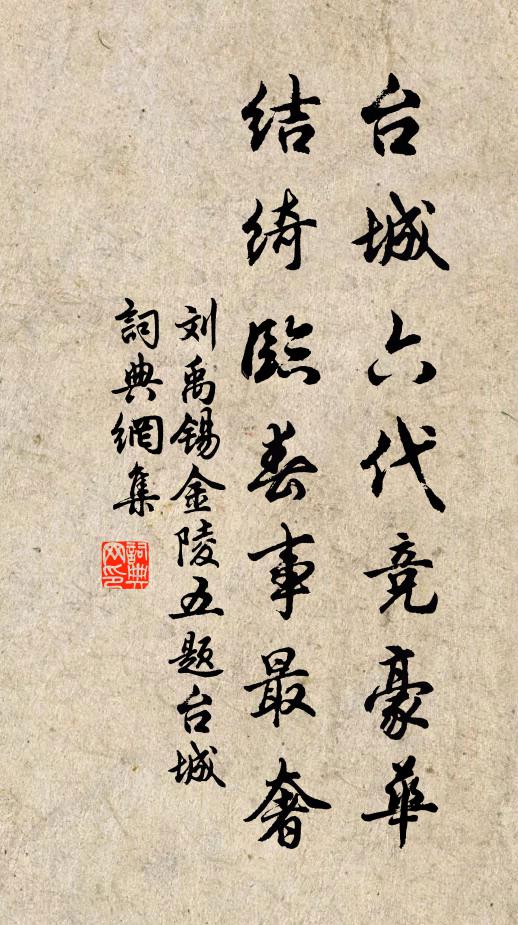 台城六代竞豪華
结绮臨春事最奢
刘禹锡金陵五题台城
詞典網集
詞典
网印